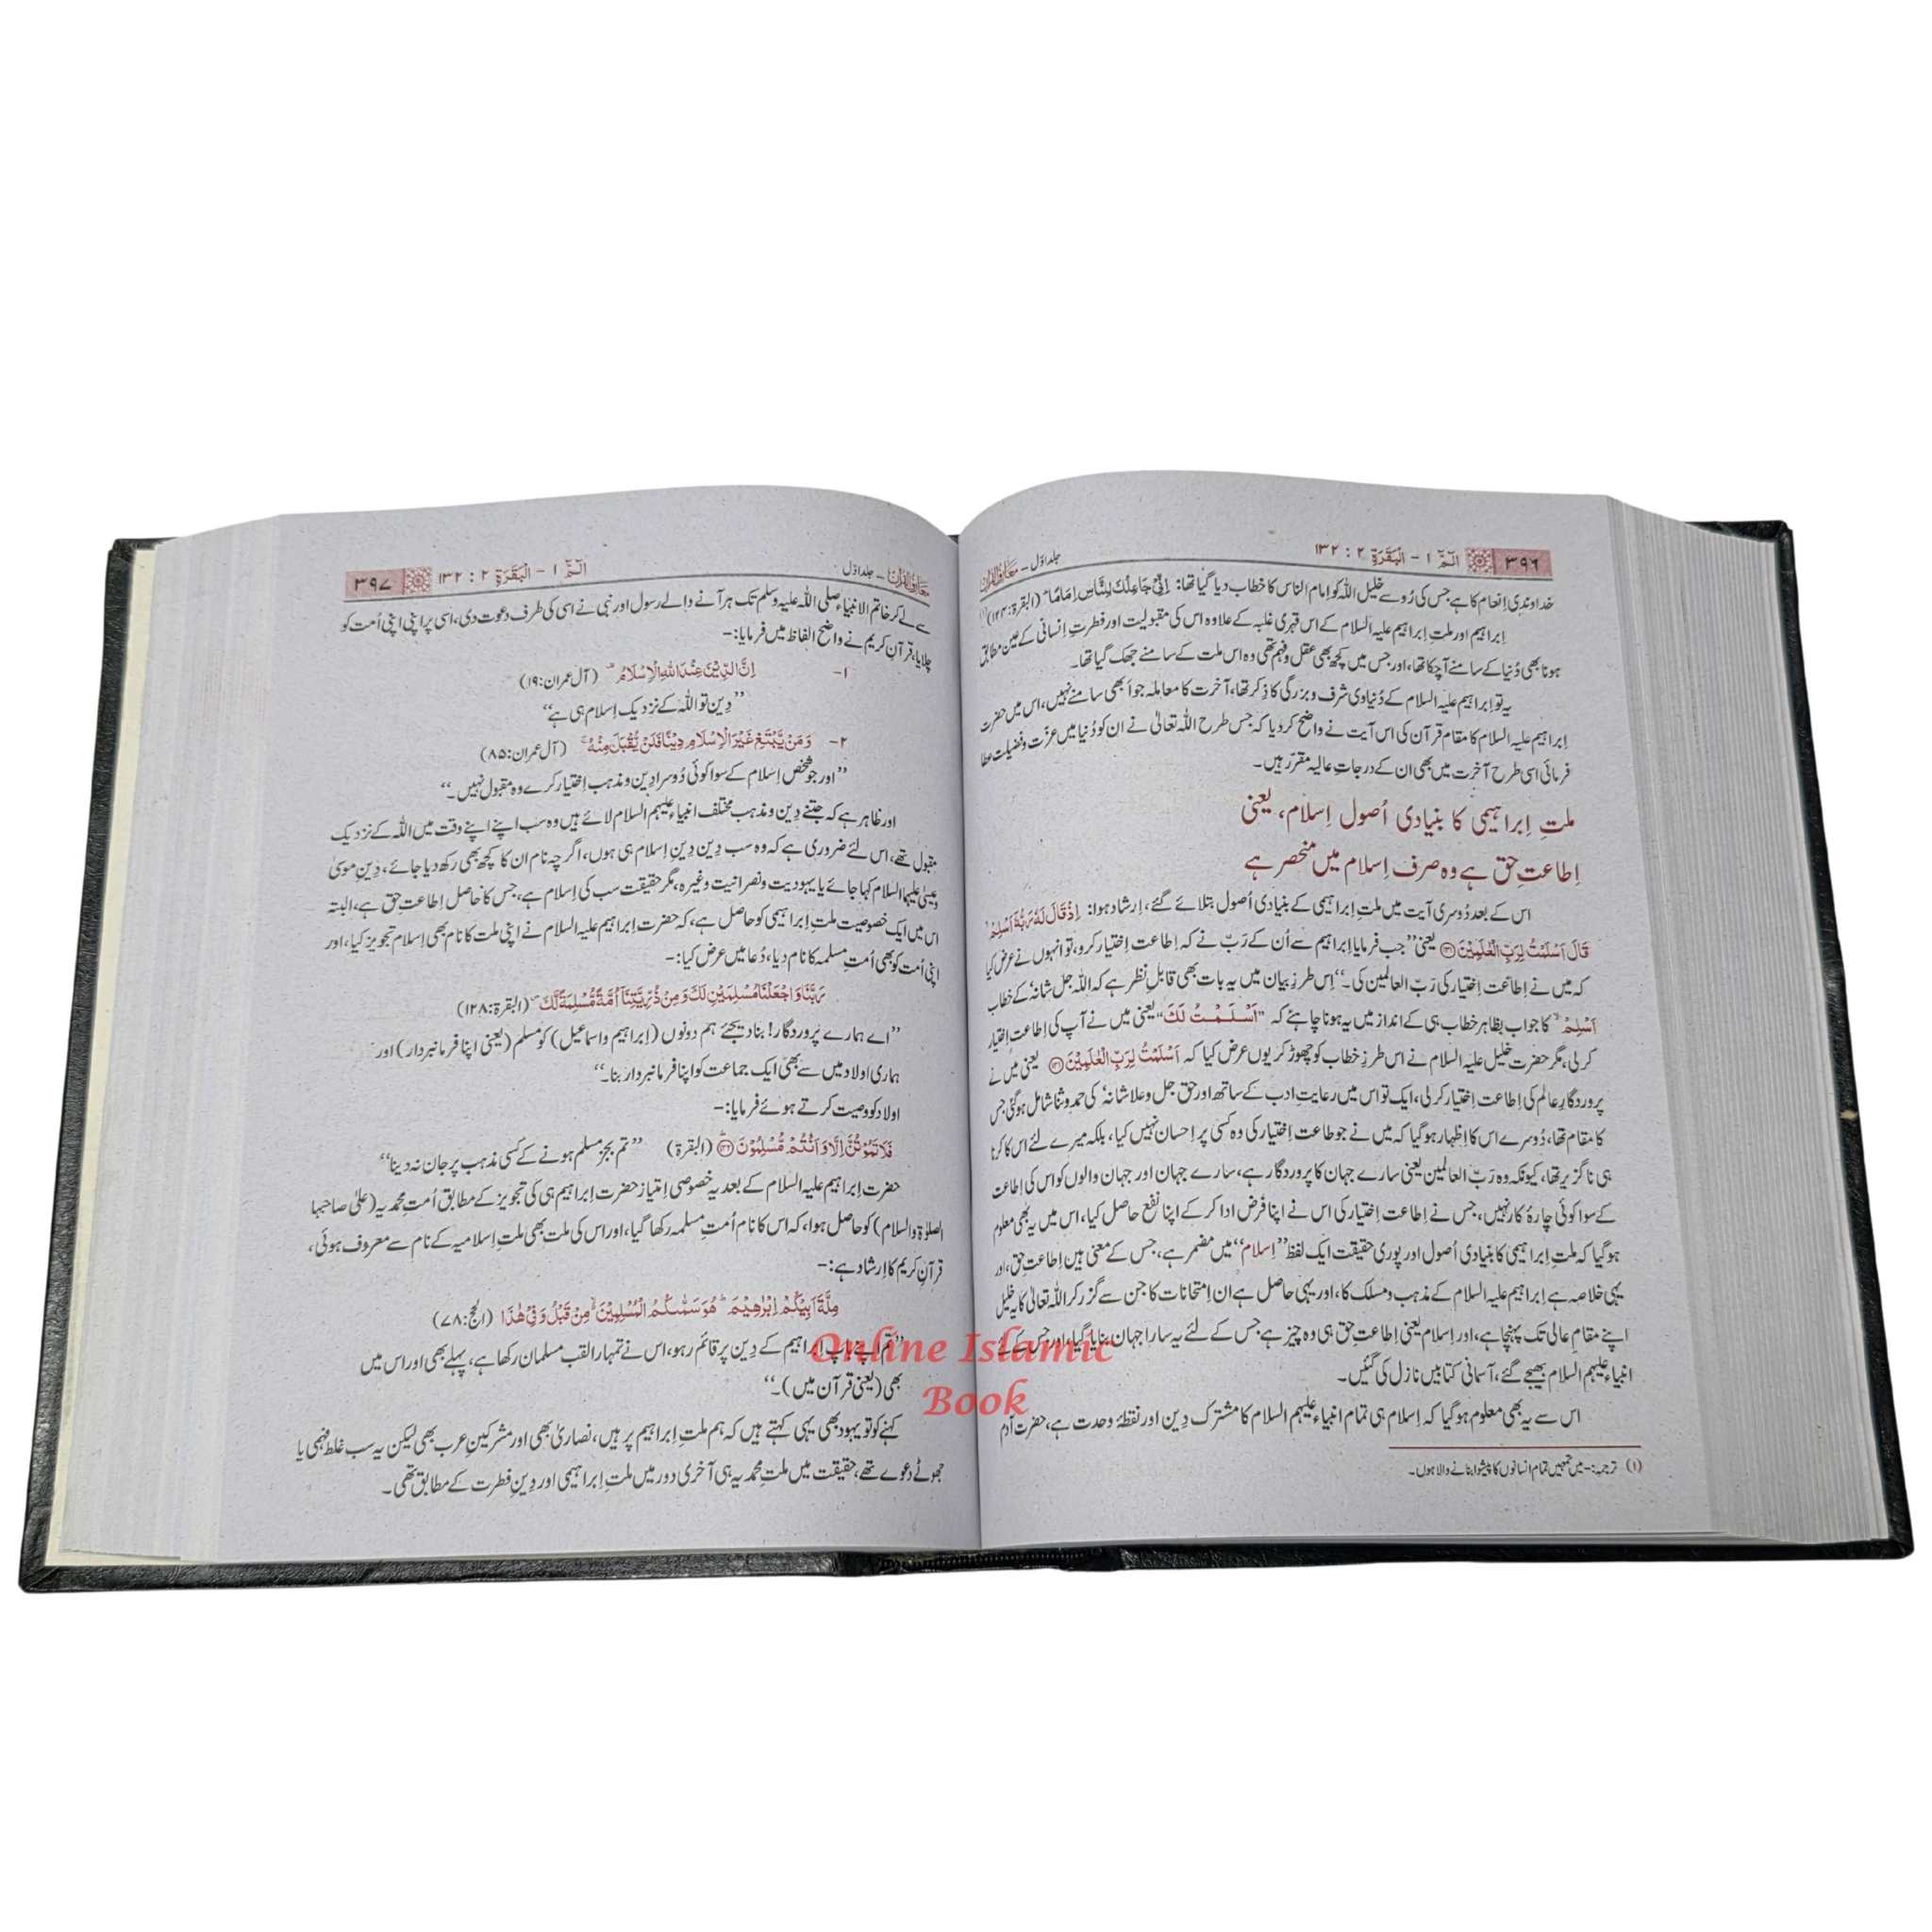 ۳۹۶ الٓمّٓ ۱ - اَلْبَقَرَۃِ ۲ : ۱۳۲ معارف القرآن - جلد اوّل
خداوندی اِنعام کا ہے جس کی رُو سے خلیل اللہ کو امام الناس کا خطاب دیا گیا تھا: اِنِّیْ جَاعِلُكَ لِلنَّاسِ اِمَامًا (البقرۃ:۱۲۴)(۱)
اِبراہیم اور ملتِ اِبراہیم علیہ السلام کے اس قہری غلبہ کے علاوہ اس کی مقبولیت اور فطرتِ اِنسانی کے عین مطابق
ہونا بھی دُنیا کے سامنے آچکا تھا، اور جس میں کچھ بھی عقل و فہم تھی وہ اس ملت کے سامنے جھک گیا تھا۔
یہ تو اِبراہیم علیہ السلام کے دُنیاوی شرف و بزرگی کا ذِکر تھا، آخرت کا معاملہ جو اَبھی سامنے نہیں، اس میں حضرت
اِبراہیم علیہ السلام کا مقام قرآن کی اس آیت نے واضح کردیا کہ جس طرح اللہ تعالیٰ نے ان کو دُنیا میں عزّت و فضیلت عطا
فرمائی اسی طرح آخرت میں بھی ان کے درجاتِ عالیہ مقرّر ہیں۔
ملتِ اِبراہیمی کا بنیادی اُصول اِسلام، یعنی
اِطاعتِ حق ہے وہ صرف اِسلام میں منحصر ہے
اس کے بعد دُوسری آیت میں ملتِ اِبراہیمی کے بنیادی اُصول بتلائے گئے، اِرشاد ہوا: اِذْ قَالَ لَهٗ رَبُّهٗۤ اَسْلِمْ
قَالَ اَسْلَمْتُ لِرَبِّ الْعٰلَمِیْنَ ﴿۱۳۱﴾ یعنی ”جب فرمایا اِبراہیم سے اُن کے رَبّ نے کہ اِطاعت اِختیار کرو، تو انہوں نے عرض کیا
کہ میں نے اِطاعت اِختیار کی رَبّ العالمین کی۔“ اِس طرزِ بیان میں یہ بات بھی قابلِ نظر ہے کہ اللہ جل شانہٗ کے خطاب
اَسْلِمْ کا جواب بظاہر خطاب ہی کے انداز میں یہ ہونا چاہئے کہ ”اَسْلَمْتُ لَكَ“ یعنی میں نے آپ کی اِطاعت اِختیار
کرلی، مگر حضرت خلیل علیہ السلام نے اس طرزِ خطاب کو چھوڑ کر یوں عرض کیا کہ اَسْلَمْتُ لِرَبِّ الْعٰلَمِیْنَ ﴿۱۳۱﴾ یعنی میں نے
پروردگارِ عالم کی اِطاعت اِختیار کرلی، ایک تو اس میں رعایتِ ادب کے ساتھ اور حق جل وعلا شانہٗ کی حمد و ثنا شامل ہوگئی جس
کا مقام تھا، دُوسرے اس کا اِظہار ہوگیا کہ میں نے جو طاعت اِختیار کی وہ کسی پر اِحسان نہیں کیا، بلکہ میرے لئے اس کا کرنا
ہی ناگزیر تھا، کیونکہ وہ رَبّ العالمین یعنی سارے جہان کا پروردگار ہے، سارے جہان اور جہان والوں کو اس کی اِطاعت
کے سوا کوئی چارۂ کار نہیں، جس نے اِطاعت اِختیار کی اس نے اپنا فرض ادا کرکے اپنا نفع حاصل کیا، اس میں یہ بھی معلوم
ہوگیا کہ ملتِ اِبراہیمی کا بنیادی اُصول اور پوری حقیقت ایک لفظ ”اِسلام“ میں مضمر ہے، جس کے معنی ہیں اِطاعتِ حق، اور
یہی خلاصہ ہے اِبراہیم علیہ السلام کے مذہب و مسلک کا، اور یہی حاصل ہے ان اِمتحانات کا جن سے گزر کر اللہ تعالیٰ کا یہ خلیل
اپنے مقامِ عالی تک پہنچا ہے، اور اِسلام یعنی اِطاعتِ حق ہی وہ چیز ہے جس کے لئے یہ سارا جہان بنایا گیا، اور جس کے لئے
انبیاء علیہم السلام بھیجے گئے، آسمانی کتابیں نازل کی گئیں۔
اس سے یہ بھی معلوم ہوگیا کہ اِسلام ہی تمام انبیاء علیہم السلام کا مشترک دِین اور نقطۂ وحدت ہے، حضرت آدم
(۱) ترجمہ:- میں تمہیں تمام انسانوں کا پیشوا بنانے والا ہوں۔
معارف القرآن - جلد اوّل الٓمّٓ ۱ - اَلْبَقَرَۃِ ۲ : ۱۳۲ ۳۹۷
سے لے کر خاتم الانبیاء صلی اللہ علیہ وسلم تک ہر آنے والے رسول اور نبی نے اسی کی طرف دعوت دی، اسی پر اپنی اپنی اُمت کو
چلایا، قرآنِ کریم نے واضح الفاظ میں فرمایا:-
۱- اِنَّ الدِّیْنَ عِنْدَ اللّٰهِ الْاِسْلَامُ (آل عمران:۱۹)
”دِین تو اللہ کے نزدیک اِسلام ہی ہے“
۲- وَمَنْ یَّبْتَغِ غَیْرَ الْاِسْلَامِ دِیْنًا فَلَنْ یُّقْبَلَ مِنْهُ (آل عمران:۸۵)
”اور جو شخص اِسلام کے سوا کوئی دُوسرا دِین و مذہب اِختیار کرے وہ مقبول نہیں۔“
اور ظاہر ہے کہ جتنے دِین و مذہب مختلف انبیاء علیہم السلام لائے ہیں وہ سب اپنے اپنے وقت میں اللہ کے نزدیک
مقبول تھے، اس لئے ضروری ہے کہ وہ سب دِین دِینِ اِسلام ہی ہوں، اگرچہ نام ان کا کچھ بھی رکھ دیا جائے، دِینِ موسیٰ
وعیسیٰ علیہما السلام کہا جائے یا یہودیت و نصرانیت وغیرہ، مگر حقیقت سب کی اِسلام ہے، جس کا حاصل اِطاعتِ حق ہے، البتہ
اس میں ایک خصوصیت ملتِ اِبراہیمی کو حاصل ہے، کہ حضرت اِبراہیم علیہ السلام نے اپنی ملت کا نام بھی اِسلام تجویز کیا، اور
اپنی اُمت کو بھی اُمتِ مسلمہ کا نام دیا، دُعا میں عرض کیا:-
رَبَّنَا وَاجْعَلْنَا مُسْلِمَیْنِ لَكَ وَمِنْ ذُرِّیَّتِنَاۤ اُمَّةً مُّسْلِمَةً لَّكَ (البقرۃ:۱۲۸)
”اے ہمارے پروردگار! بنا دیجئے ہم دونوں (اِبراہیم واسماعیل) کو مسلم (یعنی اپنا فرمانبردار) اور
ہماری اولاد میں سے بھی ایک جماعت کو اپنا فرمانبردار بنا۔“
اولاد کو وصیت کرتے ہوئے فرمایا:-
فَلَا تَمُوْتُنَّ اِلَّا وَاَنْتُمْ مُّسْلِمُوْنَ ﴿۱۳۲﴾ (البقرۃ) ”تم بجز مسلم ہونے کے کسی مذہب پر جان نہ دینا“
حضرت اِبراہیم علیہ السلام کے بعد یہ خصوصی اِمتیاز حضرت اِبراہیم ہی کی تجویز کے مطابق اُمتِ محمدیہ (علیٰ صاحبہا
الصلوٰۃ والسلام) کو حاصل ہوا، کہ اس کا نام اُمتِ مسلمہ رکھا گیا، اور اس کی ملت بھی ملتِ اِسلامیہ کے نام سے معروف ہوئی،
قرآنِ کریم کا اِرشاد ہے:-
مِلَّةَ اَبِیْكُمْ اِبْرٰهِیْمَ ؕ هُوَ سَمّٰىكُمُ الْمُسْلِمِیْنَ ۙ مِنْ قَبْلُ وَفِیْ هٰذَا (الحج:۷۸)
”تم اپنے باپ اِبراہیم کے دِین پر قائم رہو، اس نے تمہارا لقب مسلمان رکھا ہے، پہلے بھی اور اس میں
بھی (یعنی قرآن میں)۔“
کہنے کو تو یہود بھی یہی کہتے ہیں کہ ہم ملتِ اِبراہیم پر ہیں، نصاریٰ بھی اور مشرکینِ عرب بھی لیکن یہ سب غلط فہمی یا
جھوٹے دعوے تھے، حقیقت میں ملتِ محمدیہ ہی آخری دور میں ملتِ اِبراہیمی اور دِینِ فطرت کے مطابق تھی۔
Online Islamic
Book